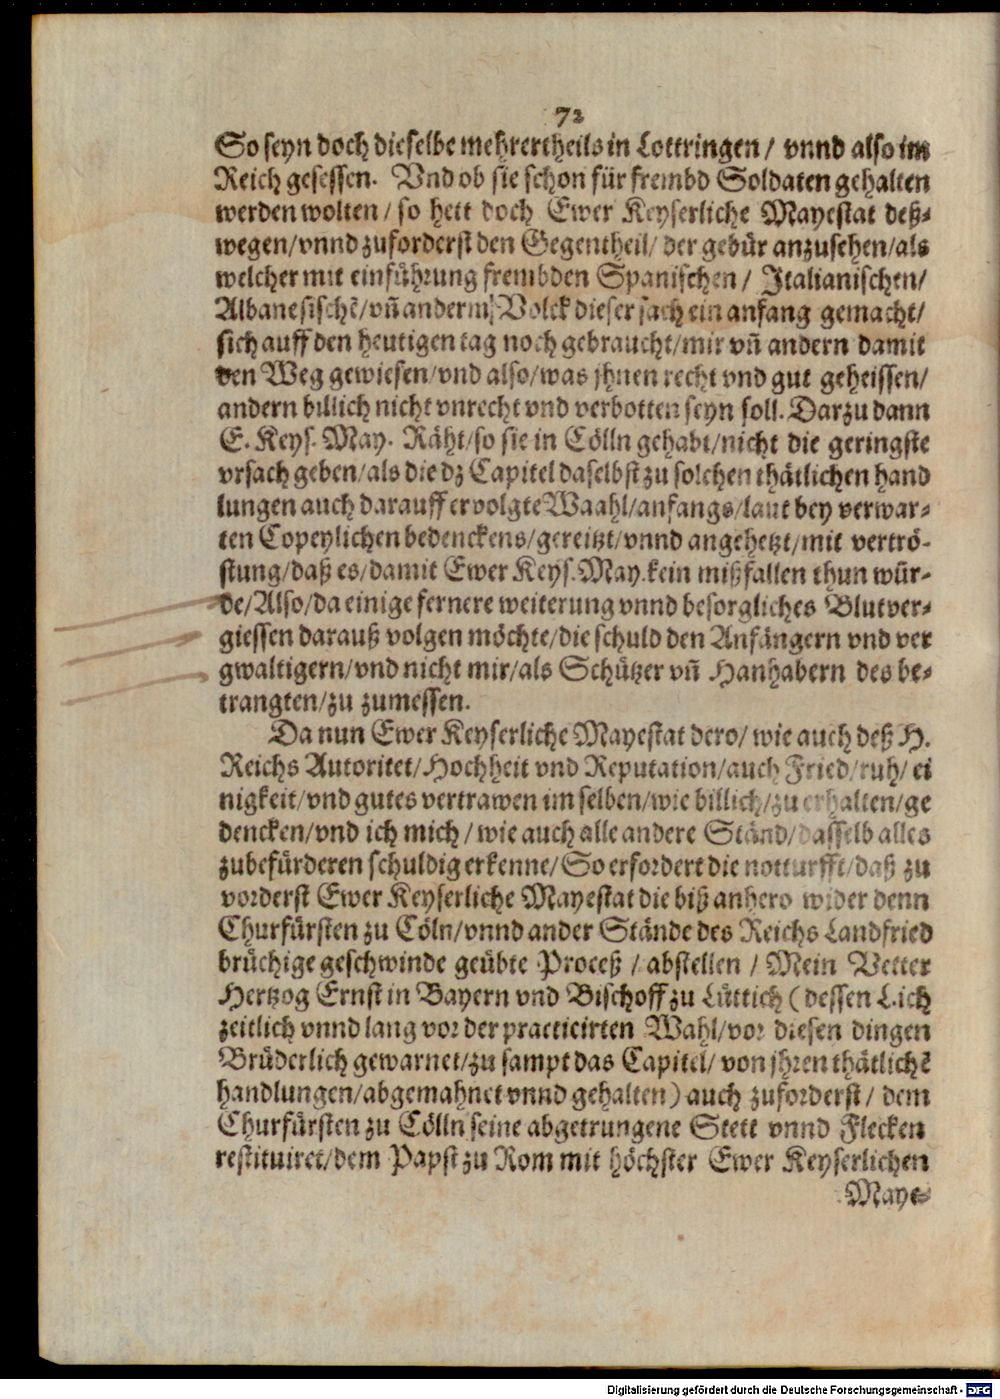 72
So seyn doch dieselbe mehrertheils in Lottringen / vnnd also im
Reich gesessen. Vnd ob sie schon für frembd Soldaten gehalten
werden wolten / so hett doch Ewer Keyserliche Mayestat deß-
wegen/vnnd zuforderst den Gegentheil/ der gebür anzusehen/als
welcher mit einführung frembden Spanischen / Italianischen/
Albanesischẽ/vñ anderm Volck dieser sach ein anfang gemacht/
sich auff den heutigen tag noch gebraucht/mir vñ andern damit
den Weg gewiesen/vnd also/was jhnen recht vnd gut geheissen/
andern billich nicht vnrecht vnd verbotten seyn soll. Darzu dann
E. Keys. May. Räht/so sie in Cölln gehabt/nicht die geringste
vrsach geben/als die dz Capitel daselbst zu solchen thätlichen hand
lungen auch darauff ervolgte Waahl/anfangs/laut bey verwar-
ten Copeylichen bedenckens/gereitzt/vnnd angehetzt/mit vertrö-
stung/daß es/damit Ewer Keys. May. kein mißfallen thun wür-
de/Also/da einige fernere weiterung vnnd besorgliches Blutver-
giessen darauß volgen möchte/die schuld den Anfängern vnd ver
gwaltigern/vnd nicht mir/als Schützer vñ Hanhabern des be-
trangten/zu zumessen.
Da nun Ewer Keyserliche Mayestat dero/ wie auch deß H.
Reichs Autoritet/Hochheit vnd Reputation/auch Fried/ruh/ ei
nigkeit/vnd gutes vertrawen im selben/wie billich/zu erhalten/ge
dencken/vnd ich mich / wie auch alle andere Ständ/dasselb alles
zubefürderen schuldig erkenne/So erfordert die notturfft/daß zu
vorderst Ewer Keyserliche Mayestat die biß anhero wider denn
Churfürsten zu Cöln/vnnd ander Stände des Reichs Landfried
brüchige geschwinde geübte Proceß / abstellen / Mein Vetter
Hertzog Ernst in Bayern vnd Bischoff zu Lüttich (dessen L. ich
zeitlich vnnd lang vor der practicirten Wahl/vor diesen dingen
Brüderlich gewarnet/zu sampt das Capitel/ von jhren thätlichẽ
handlungen/abgemahnet vnnd gehalten) auch zuforderst/ dem
Churfürsten zu Cölln seine abgetrungene Stett vnnd Flecken
restituiret/dem Papst zu Rom mit höchster Ewer Keyserlichen
Maye-
Digitalisierung gefördert durch die Deutsche Forschungsgemeinschaft - DFG